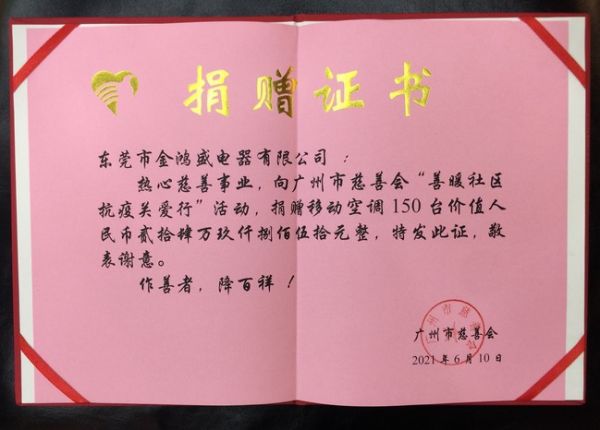 捐赠证书
东莞市金鸿盛电器有限公司：
热心慈善事业，向广州市慈善会“善暖社区
抗疫关爱行”活动，捐赠移动空调150台价值人
民币贰拾肆万玖仟捌佰伍拾元整，特发此证，敬
表谢意。
作善者，降百祥！
广州市慈善会
2021年6月10日